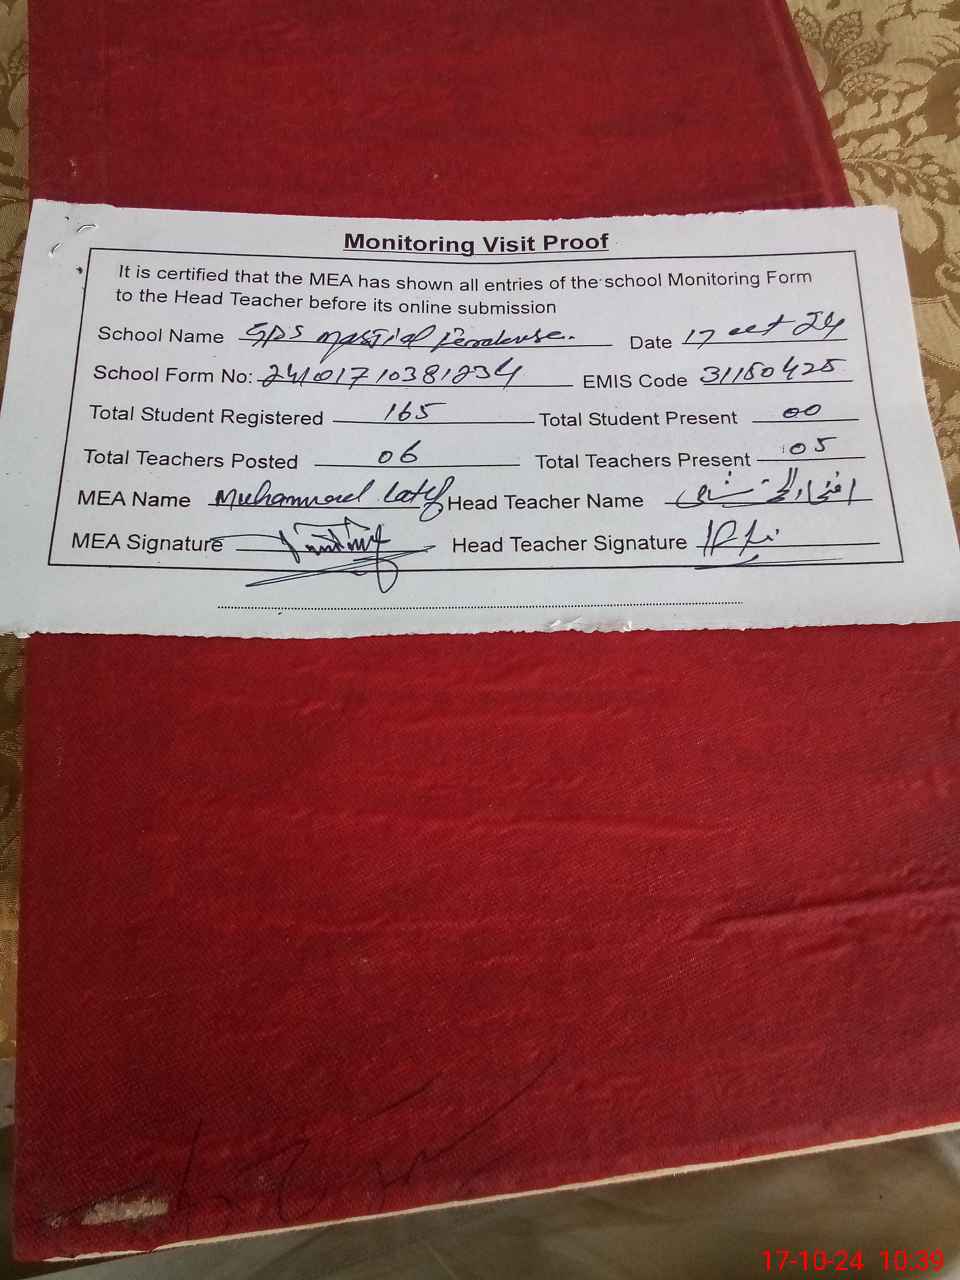 Monitoring Visit Proof
It is certified that the MEA has shown all entries of the school Monitoring Form
to the Head Teacher before its online submission
School Name GPS Date 17 oct 24
School Form No: 24101710381234 EMIS Code 31150425
Total Student Registered 165 Total Student Present 00
Total Teachers Posted 06 Total Teachers Present 05
MEA Name Muhammad Latif Head Teacher Name
MEA Signature Head Teacher Signature
17-10-24 10:39